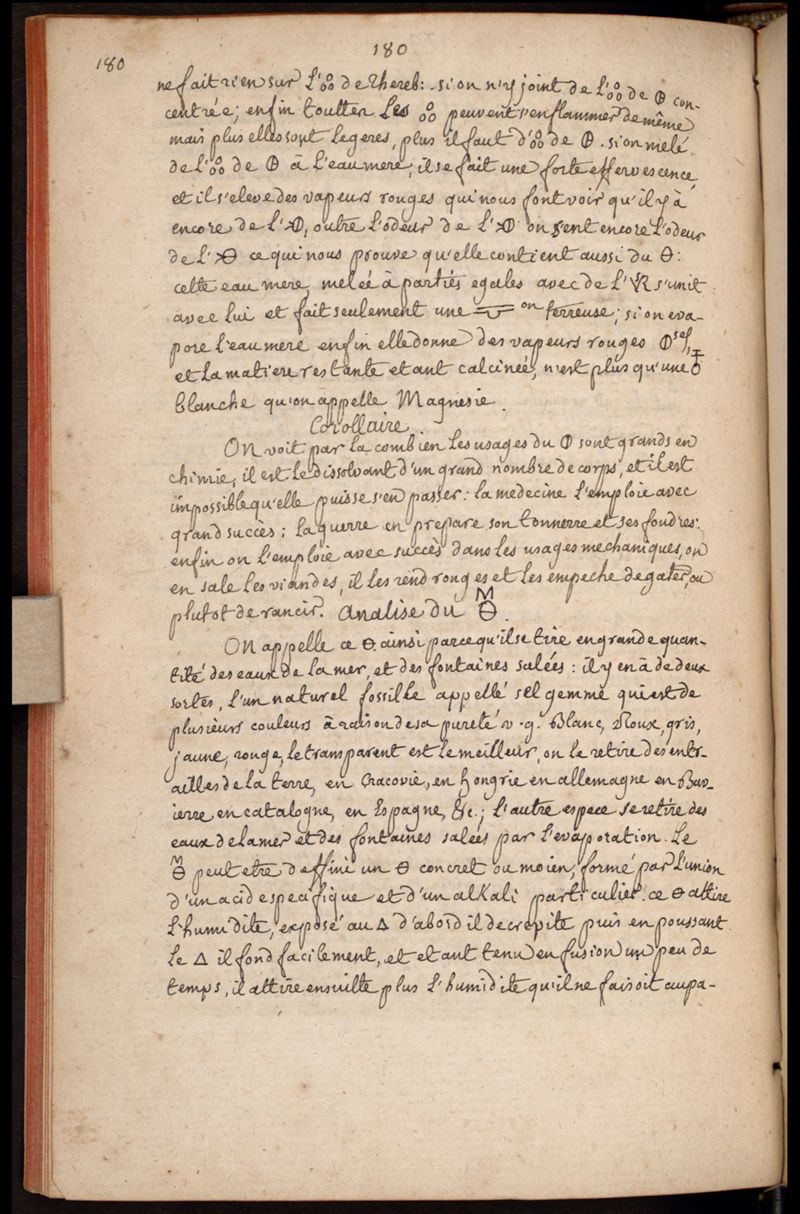 180
180
ne fait rien sur L'🝆 de thereb: si on n'y joint de L'🝆 de 🜕 con-
centrée; enfin toutten Les 🝆 peuvent s'enflammer de même
mais plus elles sont legeres, plus il faut d'🝆 de 🜕. si on melé
de L'🝆 de 🜕 à L'eau mere, il se fait une forte effervescence
et il s'eleve des vapeurs rouges qui nous font voir qu'il y à
encore de L', outre L'odeur de L' on sent encore L'odeur
de L' ce qui nous prouve qu'elle contient aussi du 🜔:
cette eau mere, meleé à partiés egales avec de L' s'unit
avec Lui et fait seulement une on terreuse; si on eva-
pore l'eau mere enfin elle donne des vapeurs rouges 🜕sel,
et La matiere restante etant calcinée, n'est plus qu'une
blanche qu'on appelle Magnesie.
Corollaire
On voit par la combien Les usages du 🜕 sont grands en
chimie, il est Le dissolvant d'un grand nombre de corps, et il est
impossible qu'elle puisse s'en passer: la medecine l'emploie avec
grand succès; la guerre en prepare son tonnerre et ses foudres:
enfin on L'emploie avec succès dans les usages mechaniques, on
en sale Les viandes, il les rend rouges et les empeche de gater, ou
plutot de rancir. Analise du M🜔.
On appelle ce 🜔 ainsi parce qu'il se tire en grande quan-
tité des eaux de la mer, et des fontaines salées: il y en à de deux
sortes, l'un naturel fossille appellé sel gemme qui est de
plusieurs couleurs à raison de sa pureté v. g. Blanc, Roux, gris,
jaune, rouge, le transparent est le meilleur, on le retire des entr-
ailles de la terre, en Cracovie, en hongrie en allemagne en Bav-
ierre en catalogne, en Espagne, &c.; l'autre espece se retire des
eaux de la mer et des fontaines salées par l'evaporation. Le
M🜔 peut etre deffini un 🜔 concret ou moien, formé par l'union
d'un acid especifique et d'un alkali particulier. ce 🜔 attire
L'humidite, exposé au 🜂 d'abord il decrepite puis en poussant
Le 🜂 il fond facilement, et etant tenu en fusion un peu de
temps, il attire ensuitte plus L'humidite qu'il ne faisoit aupa-